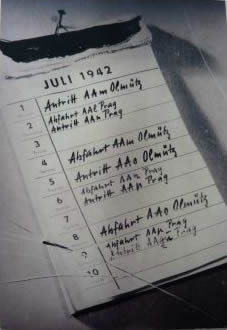 JULI 1942
1 Antritt AAm Olmütz
2 Abfahrt AAl Prag
Antritt AAn Prag
3
4 Abfahrt AAm Olmütz
5 Antritt AAo Olmütz
6 Abfahrt AAn Prag
Antritt AAp Prag
7
8 Abfahrt AAo Olmütz
9 Abfahrt AAp Prag
Antritt Prag
10